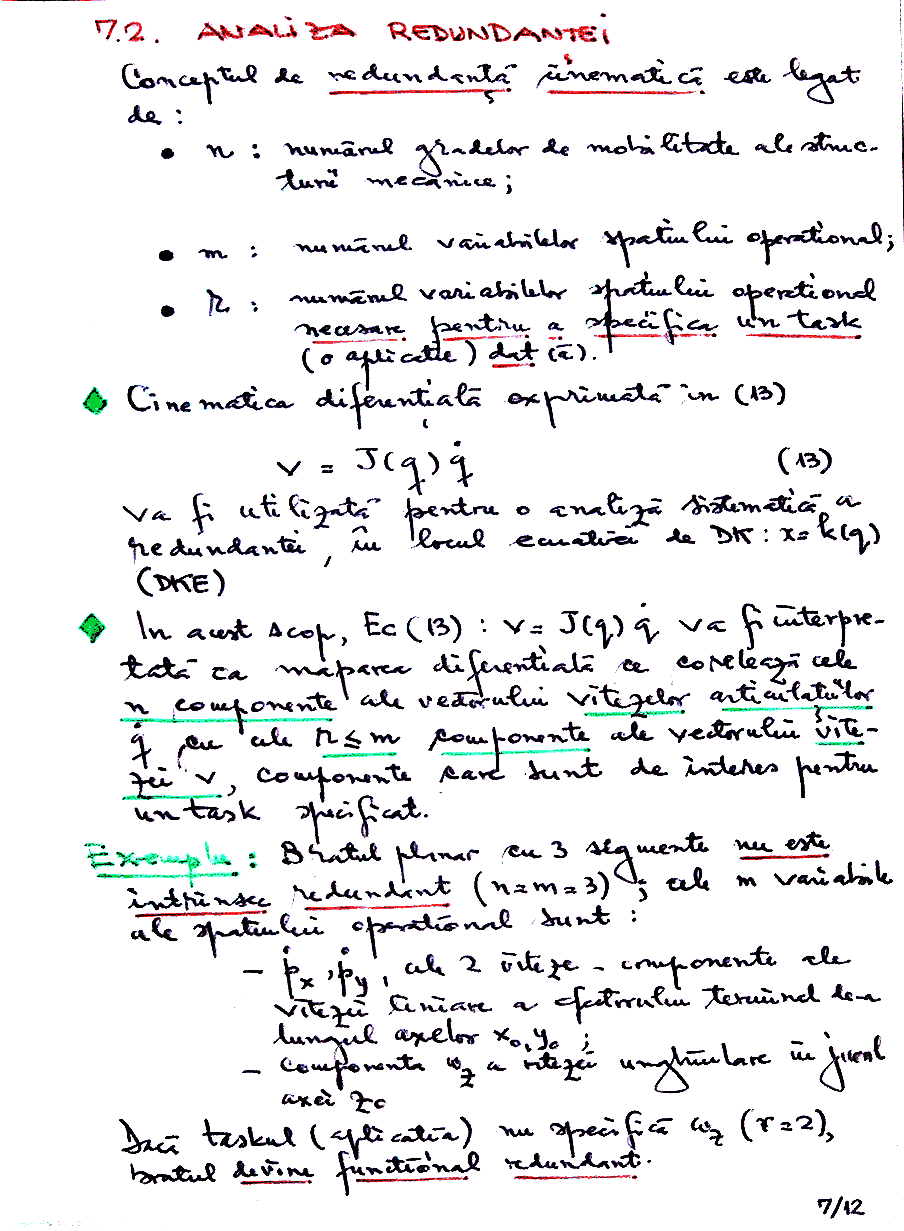 7.2. ANALIZA REDUNDANŢEI
Conceptul de redundanţă cinematică este legat
de :
• n : numărul gradelor de mobilitate ale struc-
turii mecanice ;
• m : numărul variabilelor spatiului operational ;
• r : numărul variabilelor spatiului operational
necesare pentru a specifica un task
(o aplicatie) dat (ă).
Cinematica diferenţială exprimată in (13)
v = J(q) q̇ (13)
va fi utilizată pentru o analiză sistematică a
redundantei, în locul ecuatiei de DK : x = k(q)
(DKE)
In acest scop, Ec (13) : v = J(q) q̇ va fi interpre-
tată ca maparea diferentială ce corelează cele
n componente ale vectorului vitezelor articulaţiilor
q̇, cu cele r ≤ m componente ale vectorului vite-
zei v, componente care sunt de interes pentru
un task specificat.
Exemplu : Bratul planar cu 3 segmente nu este
intrinsec redundant (n=m=3) ; cele m variabile
ale spatiului operational sunt :
– ṗx, ṗy, cele 2 viteze - componente ale
vitezei liniare a efectorului terminal de-a
lungul axelor x0, y0 ;
– componenta ωz a vitezei unghiulare în jurul
axei z0
Dacă taskul (aplicatia) nu specifică ωz (r=2),
bratul devine functional redundant.
7/12